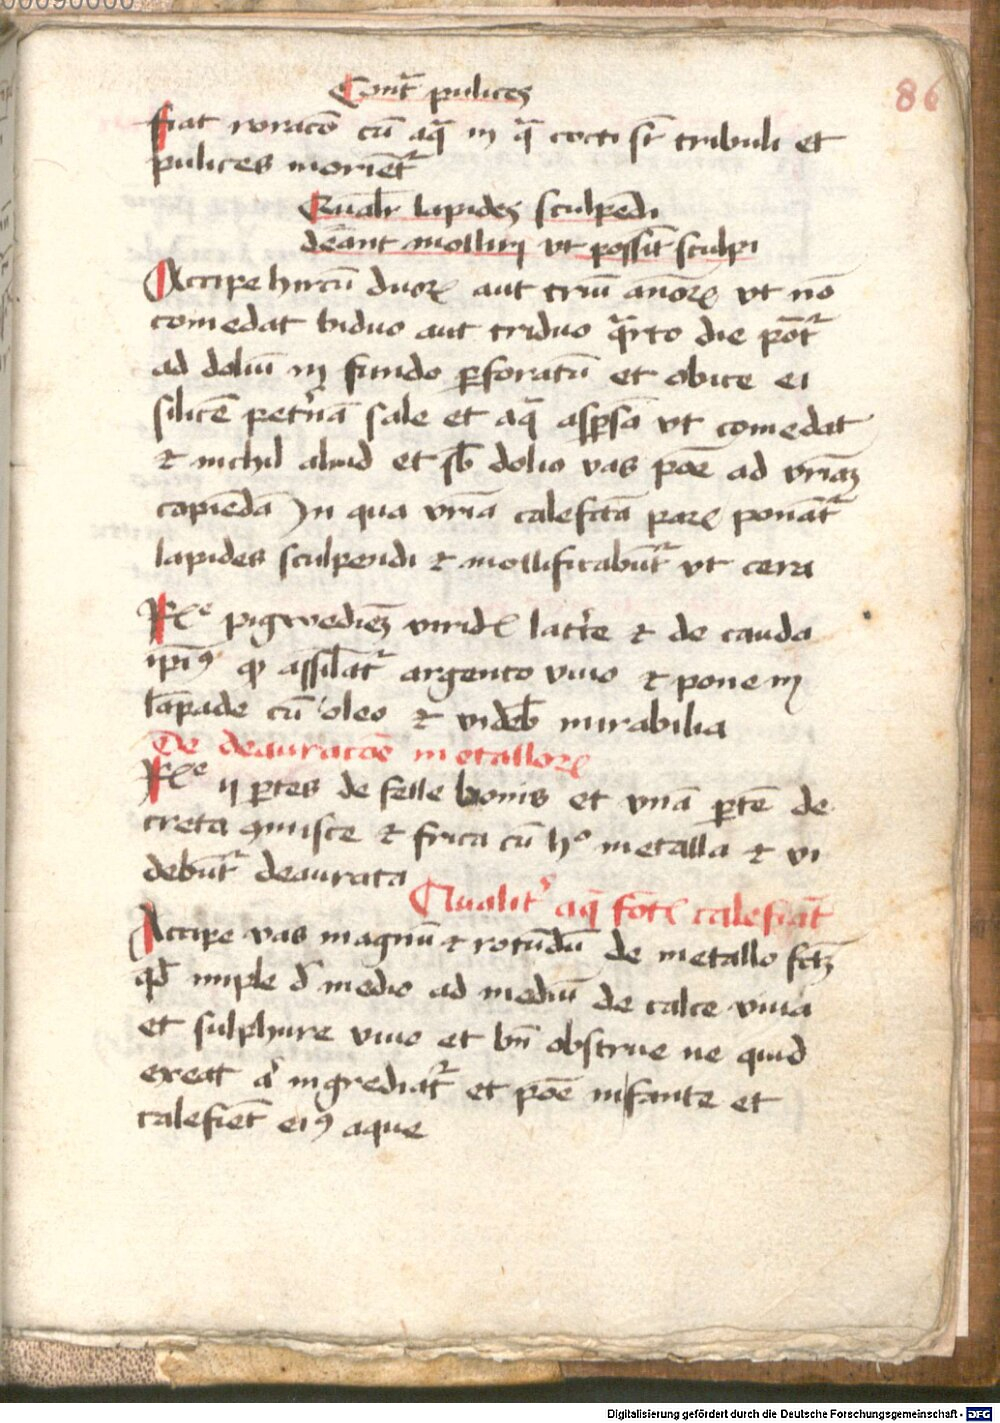 86
Contˀ pulices
fiat roracō cū aq̄ in q̄ cocti sr̄ tribuli et
pulices moriēt᷑
Qualr̄ lapides sculpēdi
debeant mollirj vt possūt sculpi
Accipe hircū duoꝝ aut triū annoꝝ vt nō
comedat biduo aut triduo quarto die pōt᷑
ad doliū in fundo ꝑforatū et obice ei
silicē petrinā sale et aq̄ asꝑsā vt comedat
⁊ nichil aliud et sb̄ dolio vas pōe ad vrinā
capiēdā In qua vrinā calefctā paꝝ ponāt᷑
lapides sculpendi ⁊ mollificabūt᷑ vt cera
Rᵉ viridꝭ lacˀte ⁊ de cauda
ip̄iꝰ assil̄at᷑ argento viuo ⁊ pone in
lāpade cū oleo ⁊ videb̄ mirabilia
De deauracōe metalloꝝ
Rᵉ ij ꝑtes de felle bouis et vnā ꝑtē de
creta ꝯmisce ⁊ frica cū hº metalla ⁊ vi
debūt᷑ deaurata
Qualitˀ aq̄ fōtꝭ calefiat
Accipe vas magnū ⁊ rotūdū de metallo fctꝫ
qd̄ imple dˀ medio ad mediū de calce viua
et sulphure viuo et bn̄ obstrue ne quid
exeat aˡ ingrediat᷑ et pōe in fonte et
calefiēt eiꝰ aque
Digitalisierung gefördert durch die Deutsche Forschungsgemeinschaft - DFG